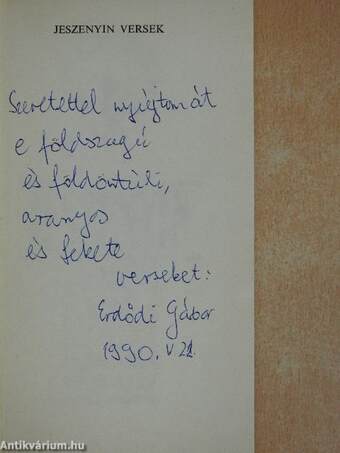 JESZENYIN VERSEK
Szeretettel nyújtom át
e földszagú
és földöntúli,
aranyos
és fekete
verseket:
Erdődi Gábor
1990. V 21.
Antikvárium.hu